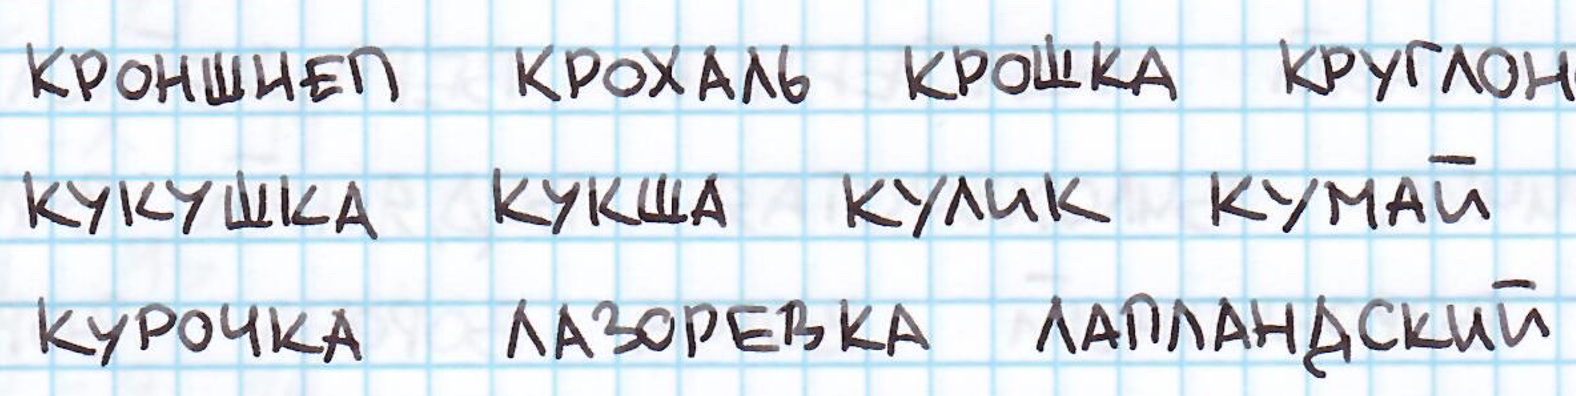 КРОНШНЕП КРОХАЛЬ КРОШКА КРУГЛОН
КУКУШКА КУКША КУЛИК КУМАЙ
КУРОЧКА ЛАЗОРЕВКА ЛАПЛАНДСКИЙ